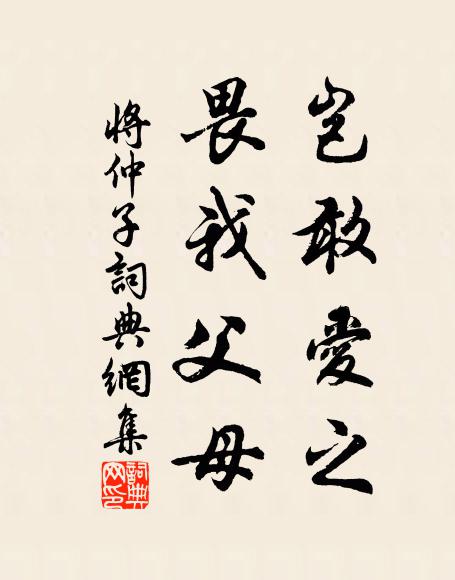 豈敢愛之
畏我父母
將仲子詞典網集
詞典網印